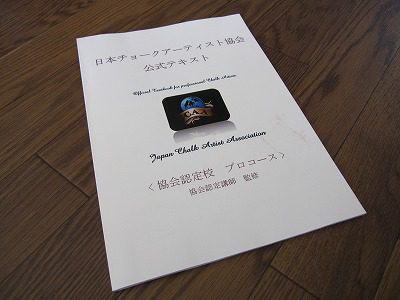 日本チョークアーティスト協会
公式テキスト
Official Textbook for professional Chalk Artists
Japan Chalk Artist Association
〈 協会認定校 プロコース 〉
協会認定講師 監修